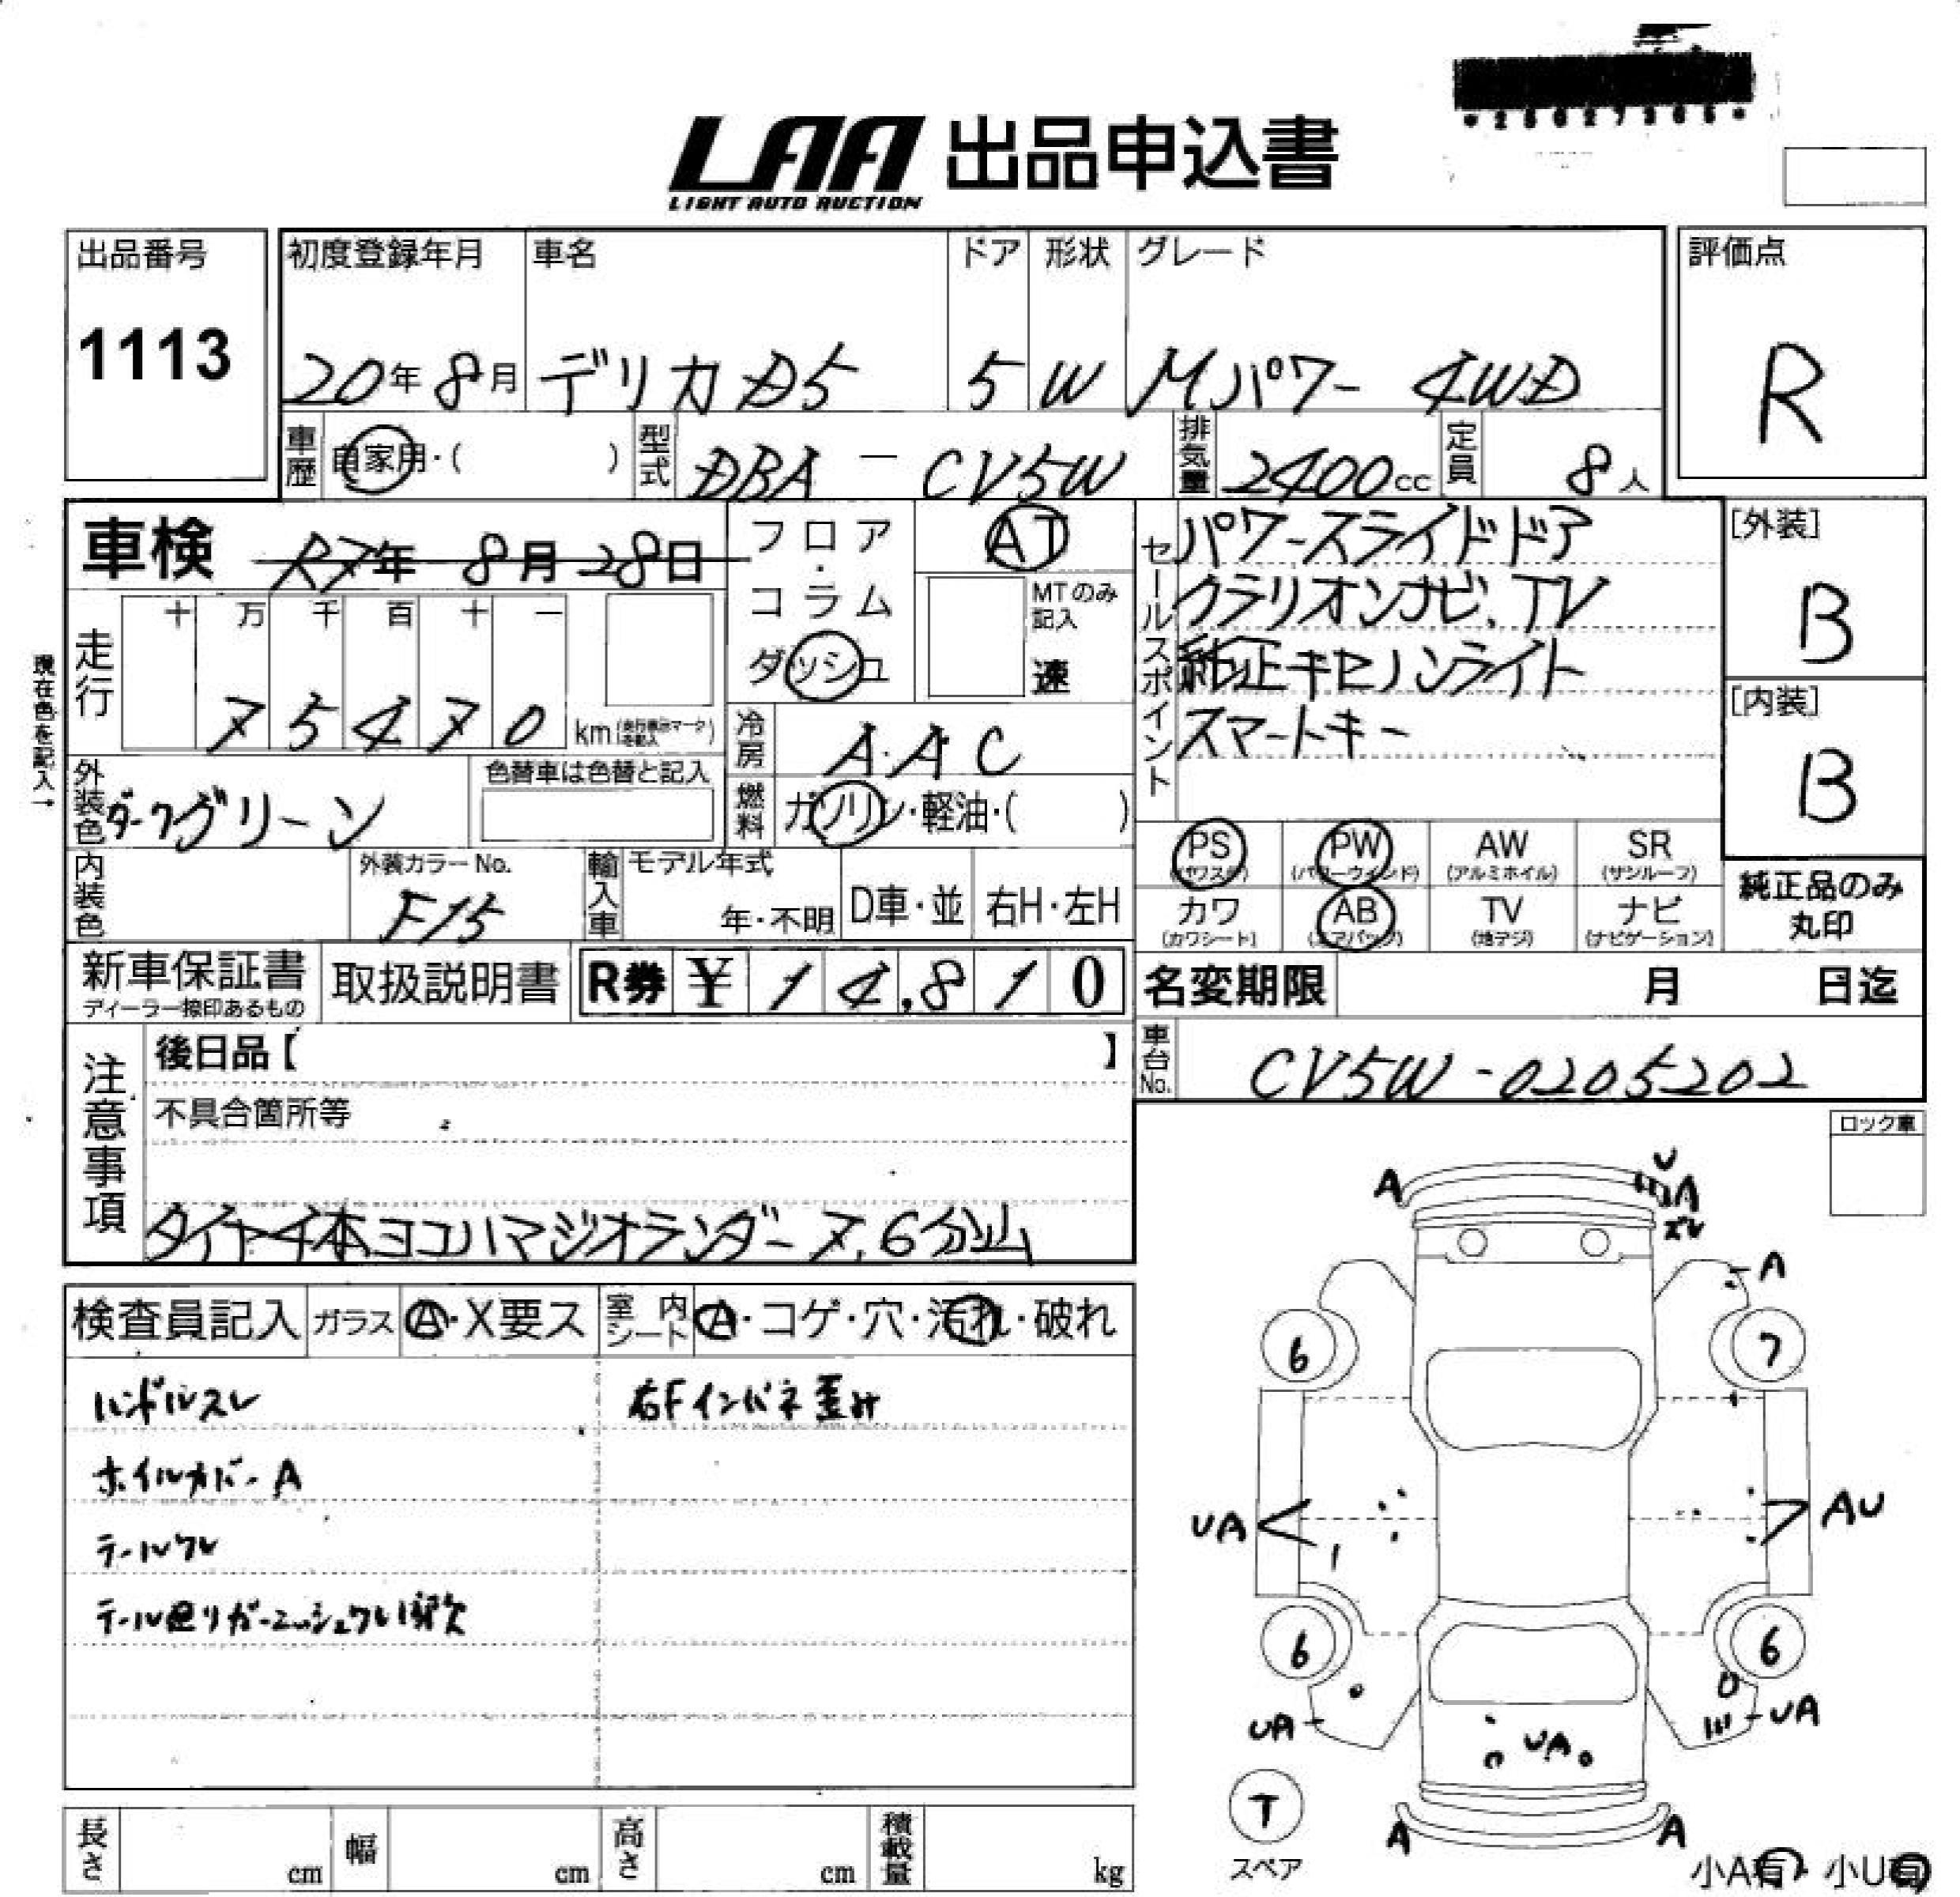 LAA 出品申込書
LIGHT AUTO AUCTION
出品番号
1113
初度登録年月
20年 8月
車名
デリカD5
ドア
5
形状
W
グレード
Mパワー 4WD
評価点
R
車歴
自家用・( )
型式
DBA - CV5W
排気量
2400cc
定員
8人
車検
R7年 8月 28日
フロア・コラム
ダッシュ
AT
MTのみ記入
速
セールスポイント
パワースライドドア
クラリオンナビ、TV
純正キセノンライト
スマートキー
[外装]
B
[内装]
B
現在色を記入→
走行
十 万 千 百 十 一
75470
km
外装色
ダークグリーン
色替車は色替と記入
冷房
A.A C
燃料
ガソリン・軽油・( )
PS
PW
(パワーウィンド)
AW
(アルミホイル)
SR
(サンルーフ)
カワ
(カワシート)
AB
(エアバック)
TV
(地デジ)
ナビ
(ナビゲーション)
純正品のみ
丸印
内装色
外装カラーNo.
F15
輸入車
モデル年式
年・不明
D車・並
右H・左H
新車保証書
ディーラー捺印あるもの
取扱説明書
R券 ¥ 14,810
名変期限
月 日迄
車台No.
CV5W-0205202
注意事項
後日品【 】
不具合箇所等
タイヤ4本ヨコハマジオランダー 7.6分山
ロック車
検査員記入
ガラス
A・X要ス
室内シート
A・コゲ・穴・汚れ・破れ
ハンドルスレ
右Fインパネ歪み
ホイルカバーA
テールワレ
テール廻りガーニッシュワレ欠
A
U
A
ズレ
A
6
7
UA
AU
6
6
UA
UA
UA
T
スペア
A
A
小A有・小U有
長さ
cm
幅
cm
高さ
cm
積載量
kg